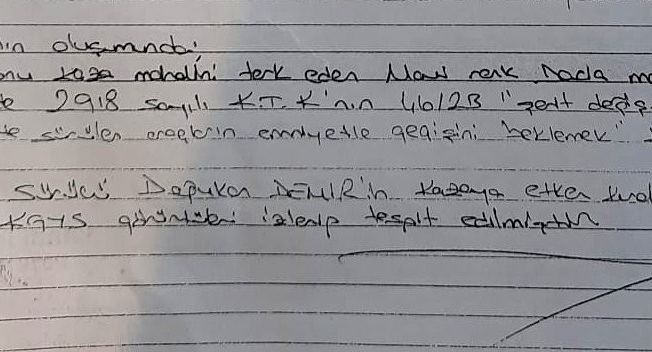 in oluşumundaki
onu kaza mahalini terk eden Mavi renk Dacia ma
2918 sayılı K.T.K'nın 46/2B "şerit değiş
te sürülen araçların emniyetle geçişini beklemek"
Sürücü DEMİR'in kazaya etken kural
KGYS görüntüleri izlenip tespit edilmiştir